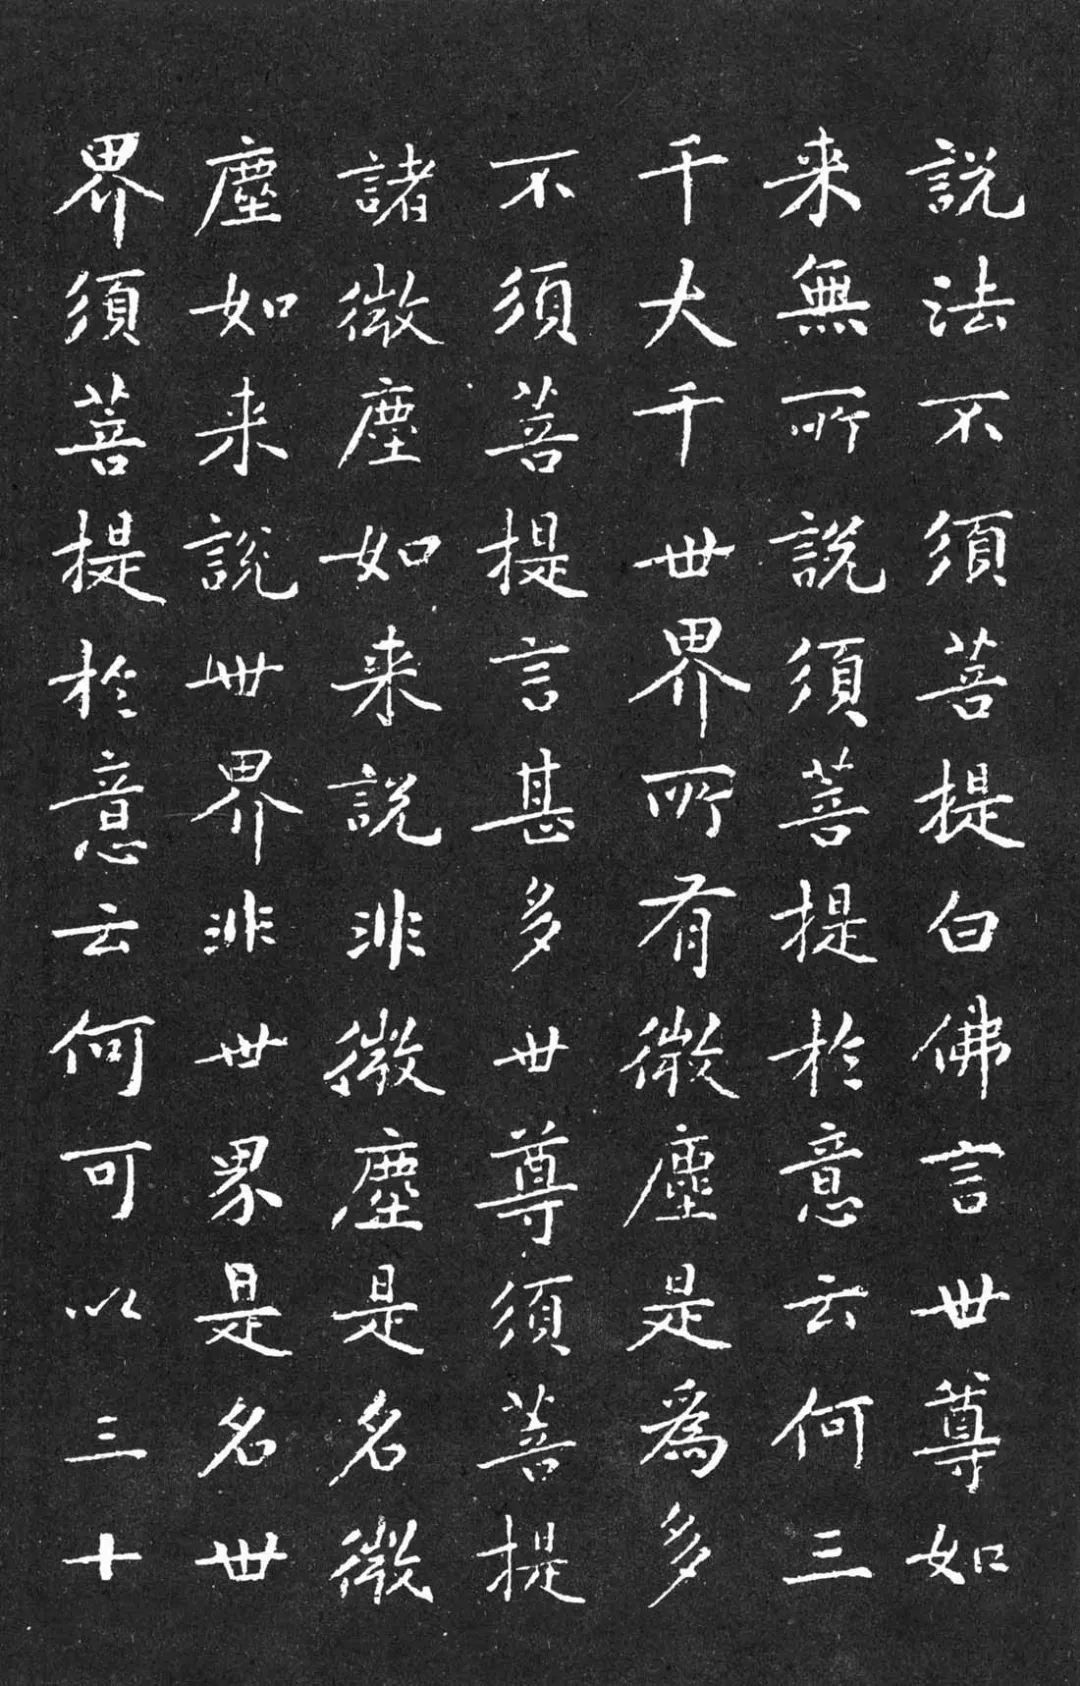 説法不須菩提白佛言世尊如
来無所説須菩提於意云何三
千大千世界所有微塵是為多
不須菩提言甚多世尊須菩提
諸微塵如来説非微塵是名微
塵如来説世界非世界是名世
界須菩提於意云何可以三十